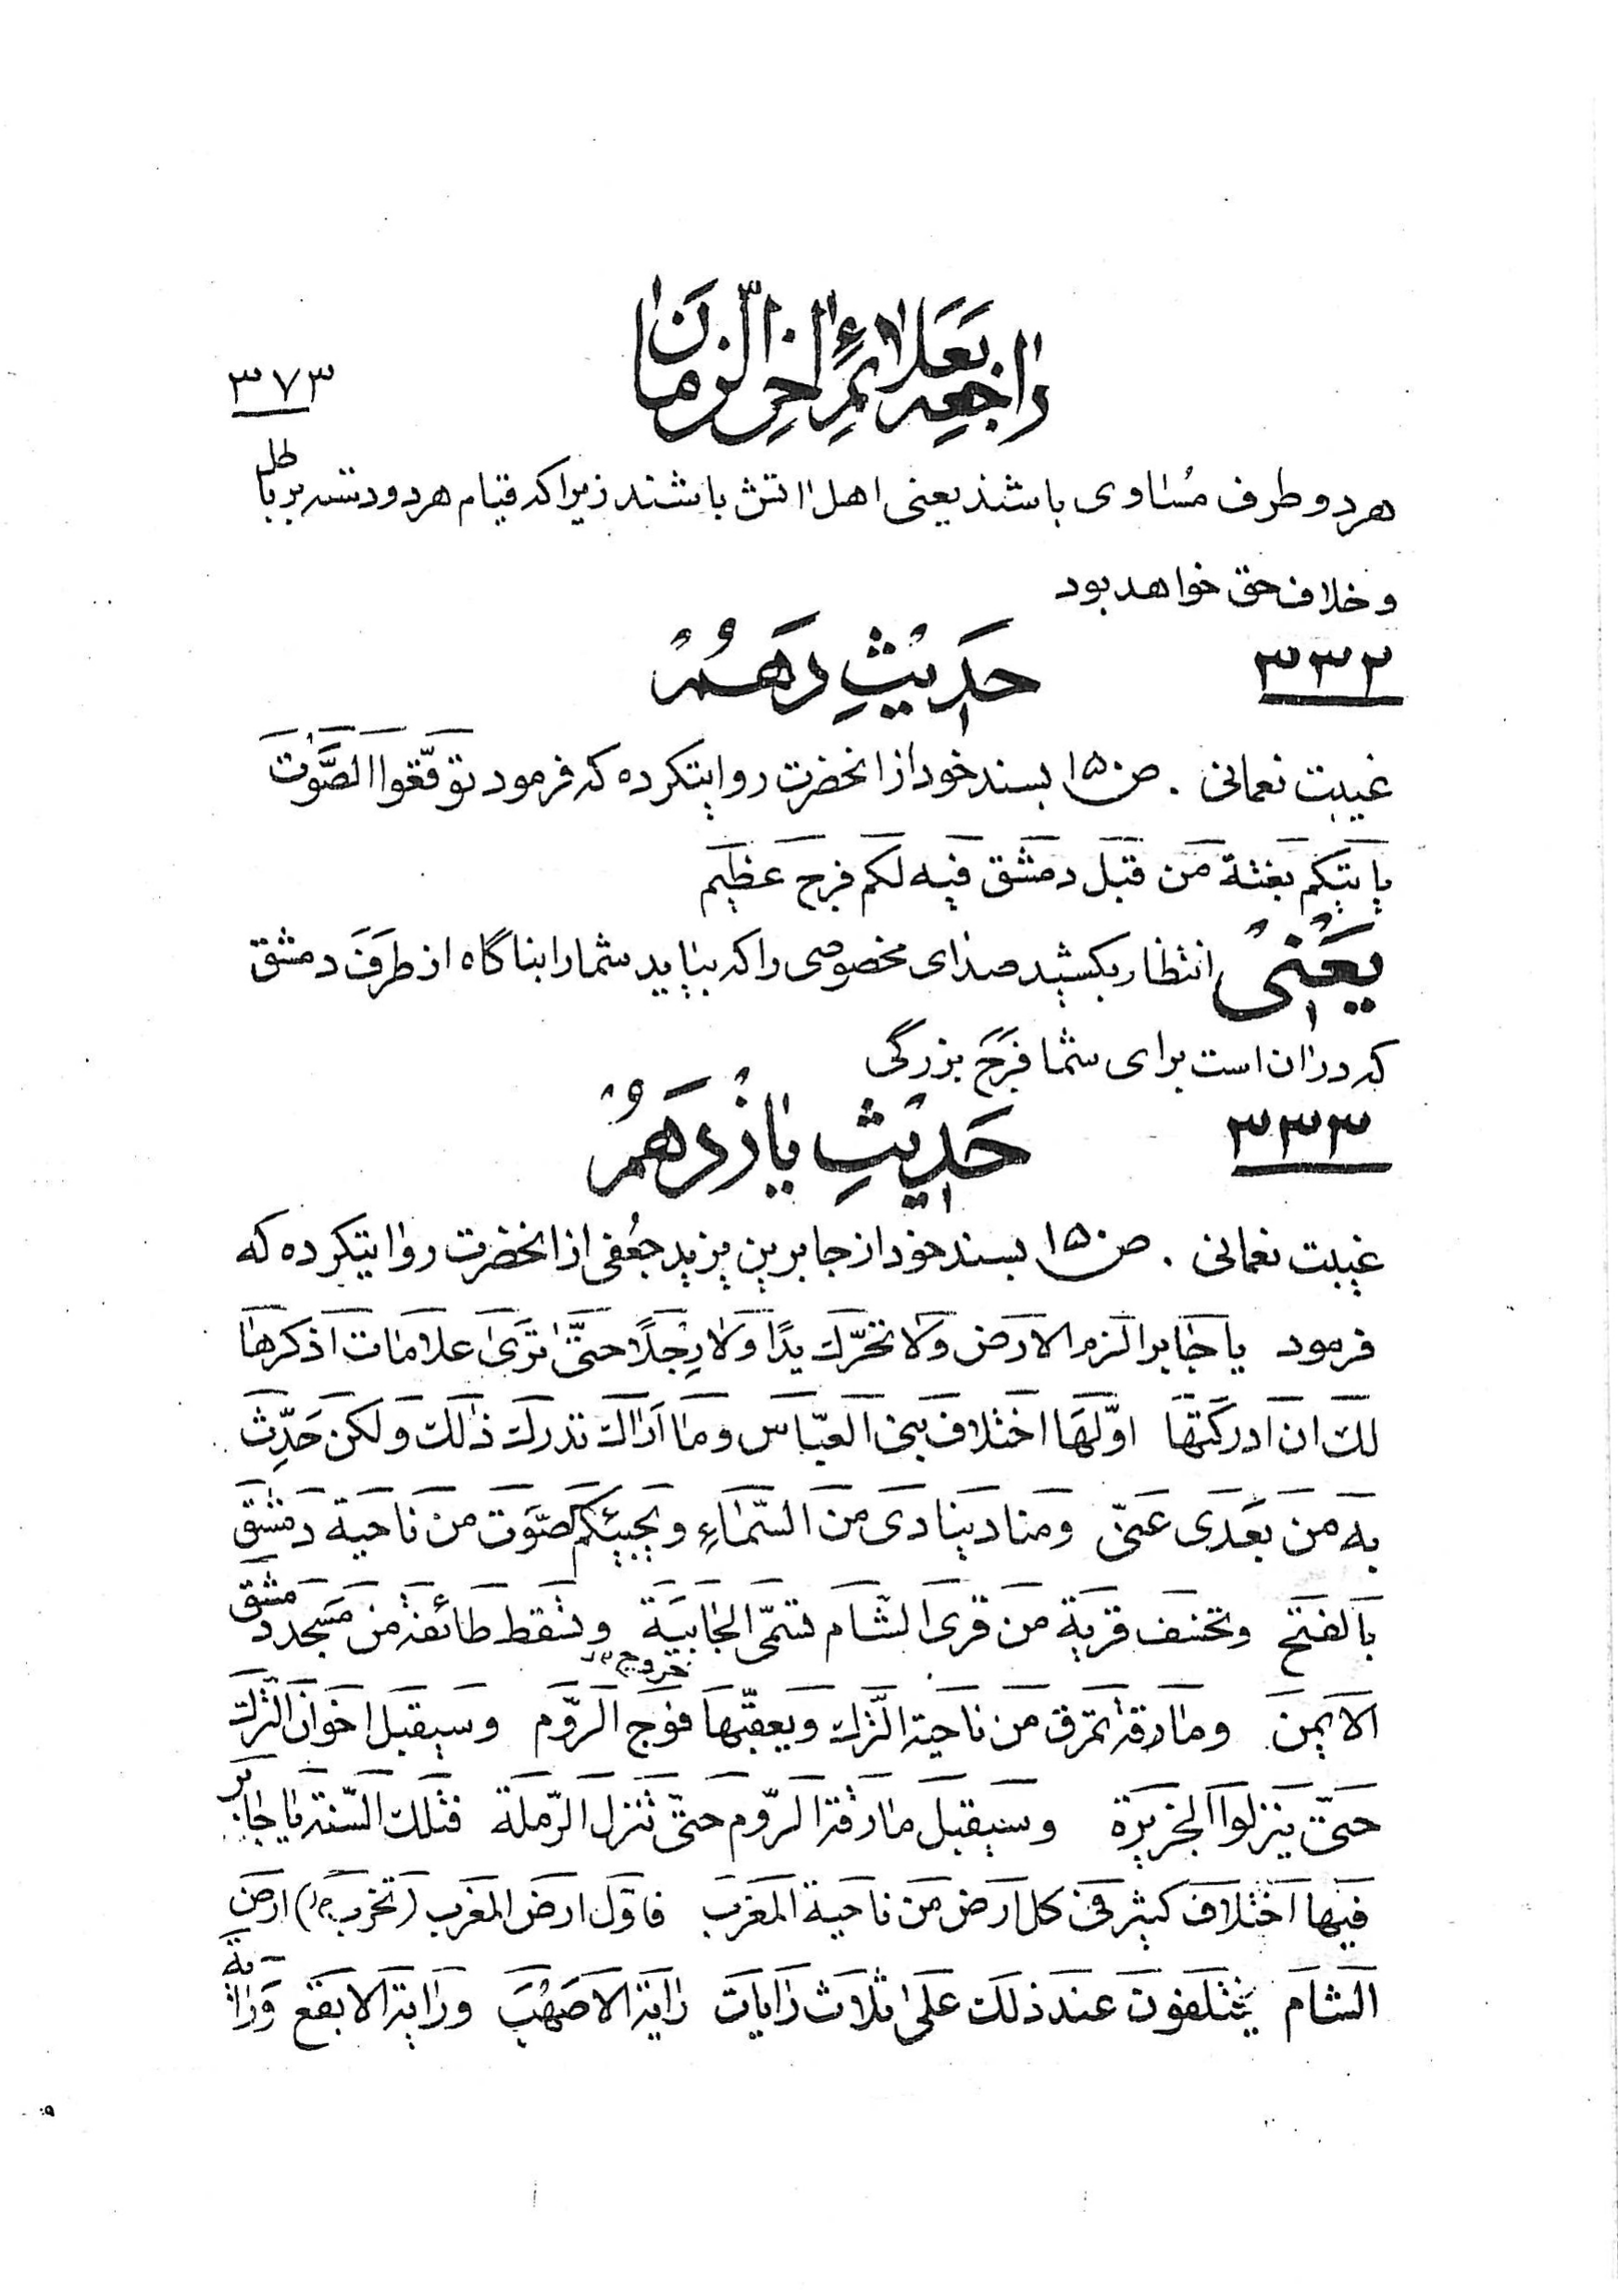 راجعه بعلائم اخر الزمان
۳۷۳
هر دو طرف مساوی باشند یعنی اهل اتش باشند زیرا که قیام هر دو دسته بر باطل
و خلاف حق خواهد بود
۳۳۲
حدیث دهم
غیبت نعمانی . ص ۱۵۰ بسند خود از انحضرت روایتکرده که فرمود توقّعوا الصَّوت
یاتیکم بغتة من قبل دمشق فیه لکم فرج عظیم
یعنی انتظار بکشید صدای مخصوصی را که بیاید شما را بناگاه از طرف دمشق
که در ان است برای شما فرج بزرگی
۳۳۳
حدیث یازدهم
غیبت نعمانی . ص ۱۵۰ بسند خود از جابر بن یزید جعُفی از انحضرت روایتکرده که
فرمود یا جابر الزم الارض ولا تحرّك یدًا ولا رِجلًا حتّی تری علامات اذکرها
لك ان ادرکتها اوّلها اختلاف بنی العبّاس وما اراك تدرك ذلك ولکن حَدِّث
به من بعدی عنّی ومناد ینادی من السّماءِ ویجیئکم صَوت من ناحیة دمشق
بالفتح وتخسف قریة من قری الشّام تسمّی الجابیة وتسقط طائفة من مسجد دمشق
الایمن ومارقة تمرق من ناحیة التّرك ویعقبّها فوج الرّوم وسیقبل اخوان التّرك
خروج
حتّی ینزلوا الجزیرة وسیقبل مارقة الرّوم حتّی تنزل الرّملة فتلك السّنة یا جابر
فیها اختلاف کثیر فی کل ارض من ناحیة المغرب فاوّل ارض المغرب (تخرب) ارض
الشام یختلفون عند ذلك علی ثلاث رایات رایة الاصهب ورایة الابقع ورایة